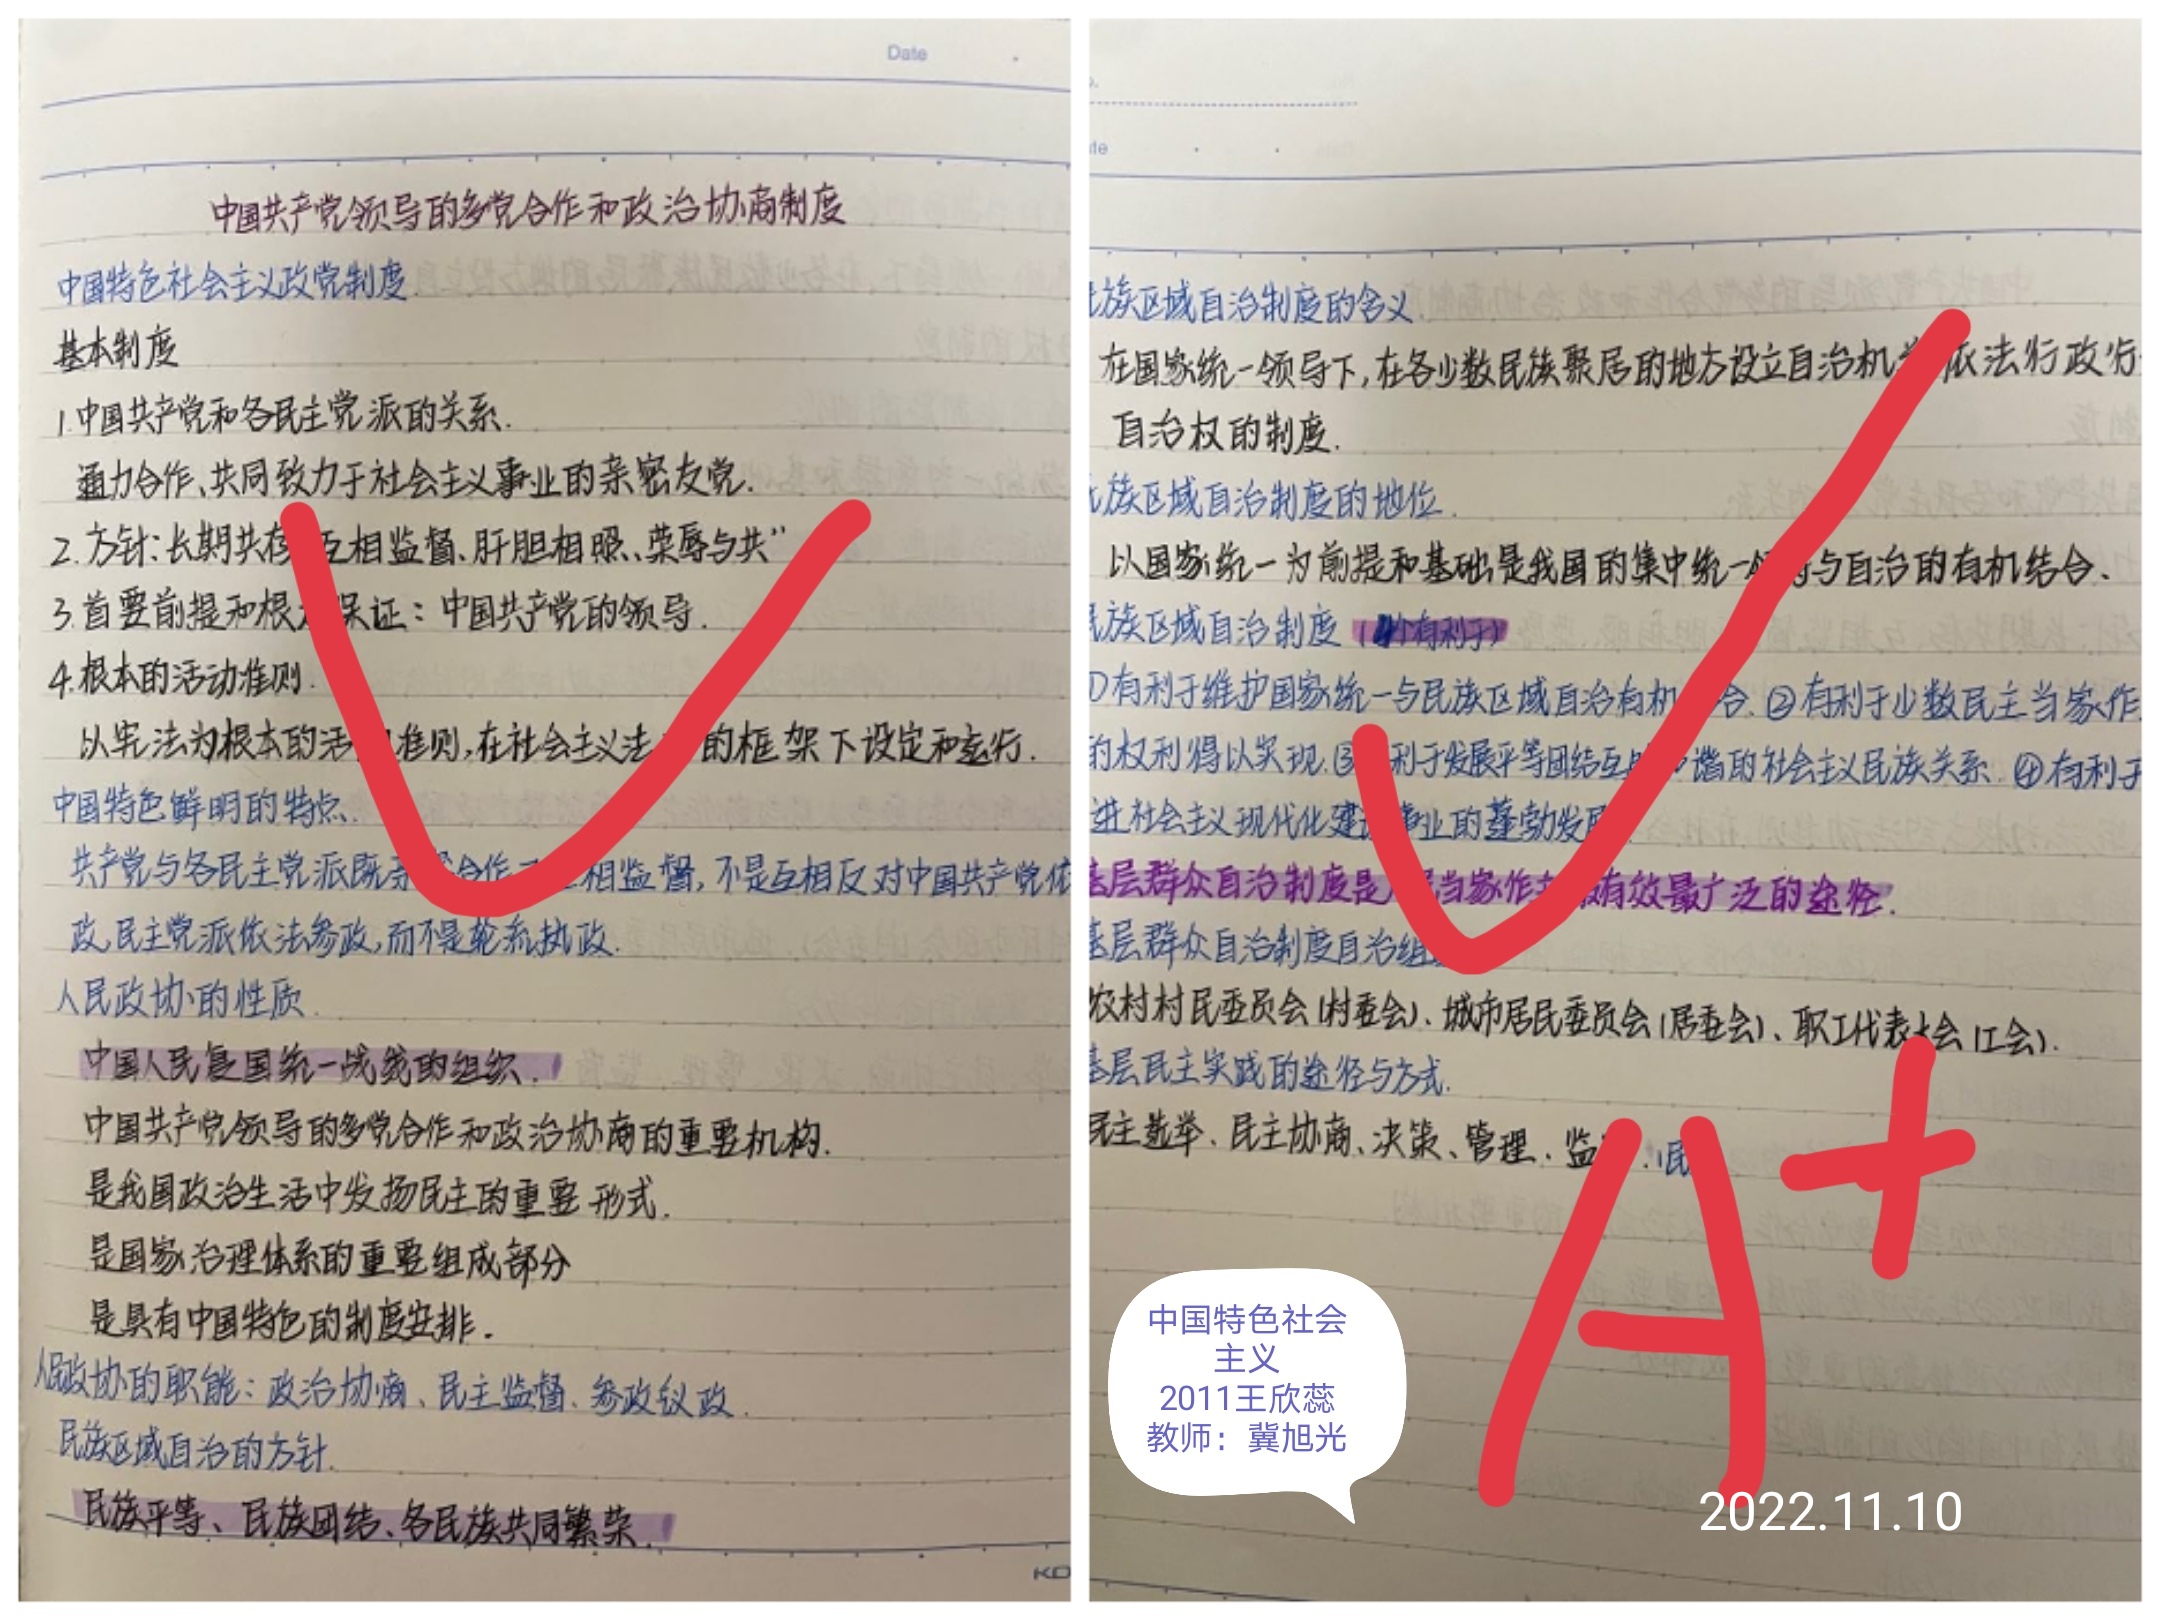 Date
中国共产党领导的多党合作和政治协商制度
中国特色社会主义政党制度
基本制度
1.中国共产党和各民主党派的关系.
通力合作、共同致力于社会主义事业的亲密友党.
2.方针:长期共存 互相监督、肝胆相照、荣辱与共"
3.首要前提和根 保证:中国共产党的领导.
4.根本的活动准则.
以宪法为根本的活 准则,在社会主义法 的框架下设定和运行.
中国特色鲜明的特点.
共产党与各民主党派既亲 合作 相监督,不是互相反对中国共产党依
政,民主党派依法参政,而不是轮流执政.
人民政协的性质.
中国人民爱国统一战线的组织.
中国共产党领导的多党合作和政治协商的重要机构.
是我国政治生活中发扬民主的重要形式.
是国家治理体系的重要组成部分
是具有中国特色的制度安排.
人民政协的职能:政治协商、民主监督、参政议政.
民族区域自治的方针.
民族平等、民族团结、各民族共同繁荣.
KO
族区域自治制度的含义
在国家统一领导下,在各少数民族聚居的地方设立自治机 依法行政行
自治权的制度.
族区域自治制度的地位.
以国家统一为前提和基础是我国的集中统一 与自治的有机结合、
民族区域自治制度(4个有利于)
①有利于维护国家统一与民族区域自治有机 合.②有利于少数民主当家作
的权利得以实现.③ 利于发展平等团结互 谐的社会主义民族关系.④有利于
进社会主义现代化建 事业的蓬勃发展
基层群众自治制度是 当家作 有效最广泛的途径.
基层群众自治制度自治组
农村村民委员会(村委会)、城市居民委员会(居委会)、职工代表大会(工会).
基层民主实践的途径与方式.
民主选举、民主协商、决策、管理、监 .(民
A+
中国特色社会
主义
2011王欣蕊
教师:冀旭光
2022.11.10